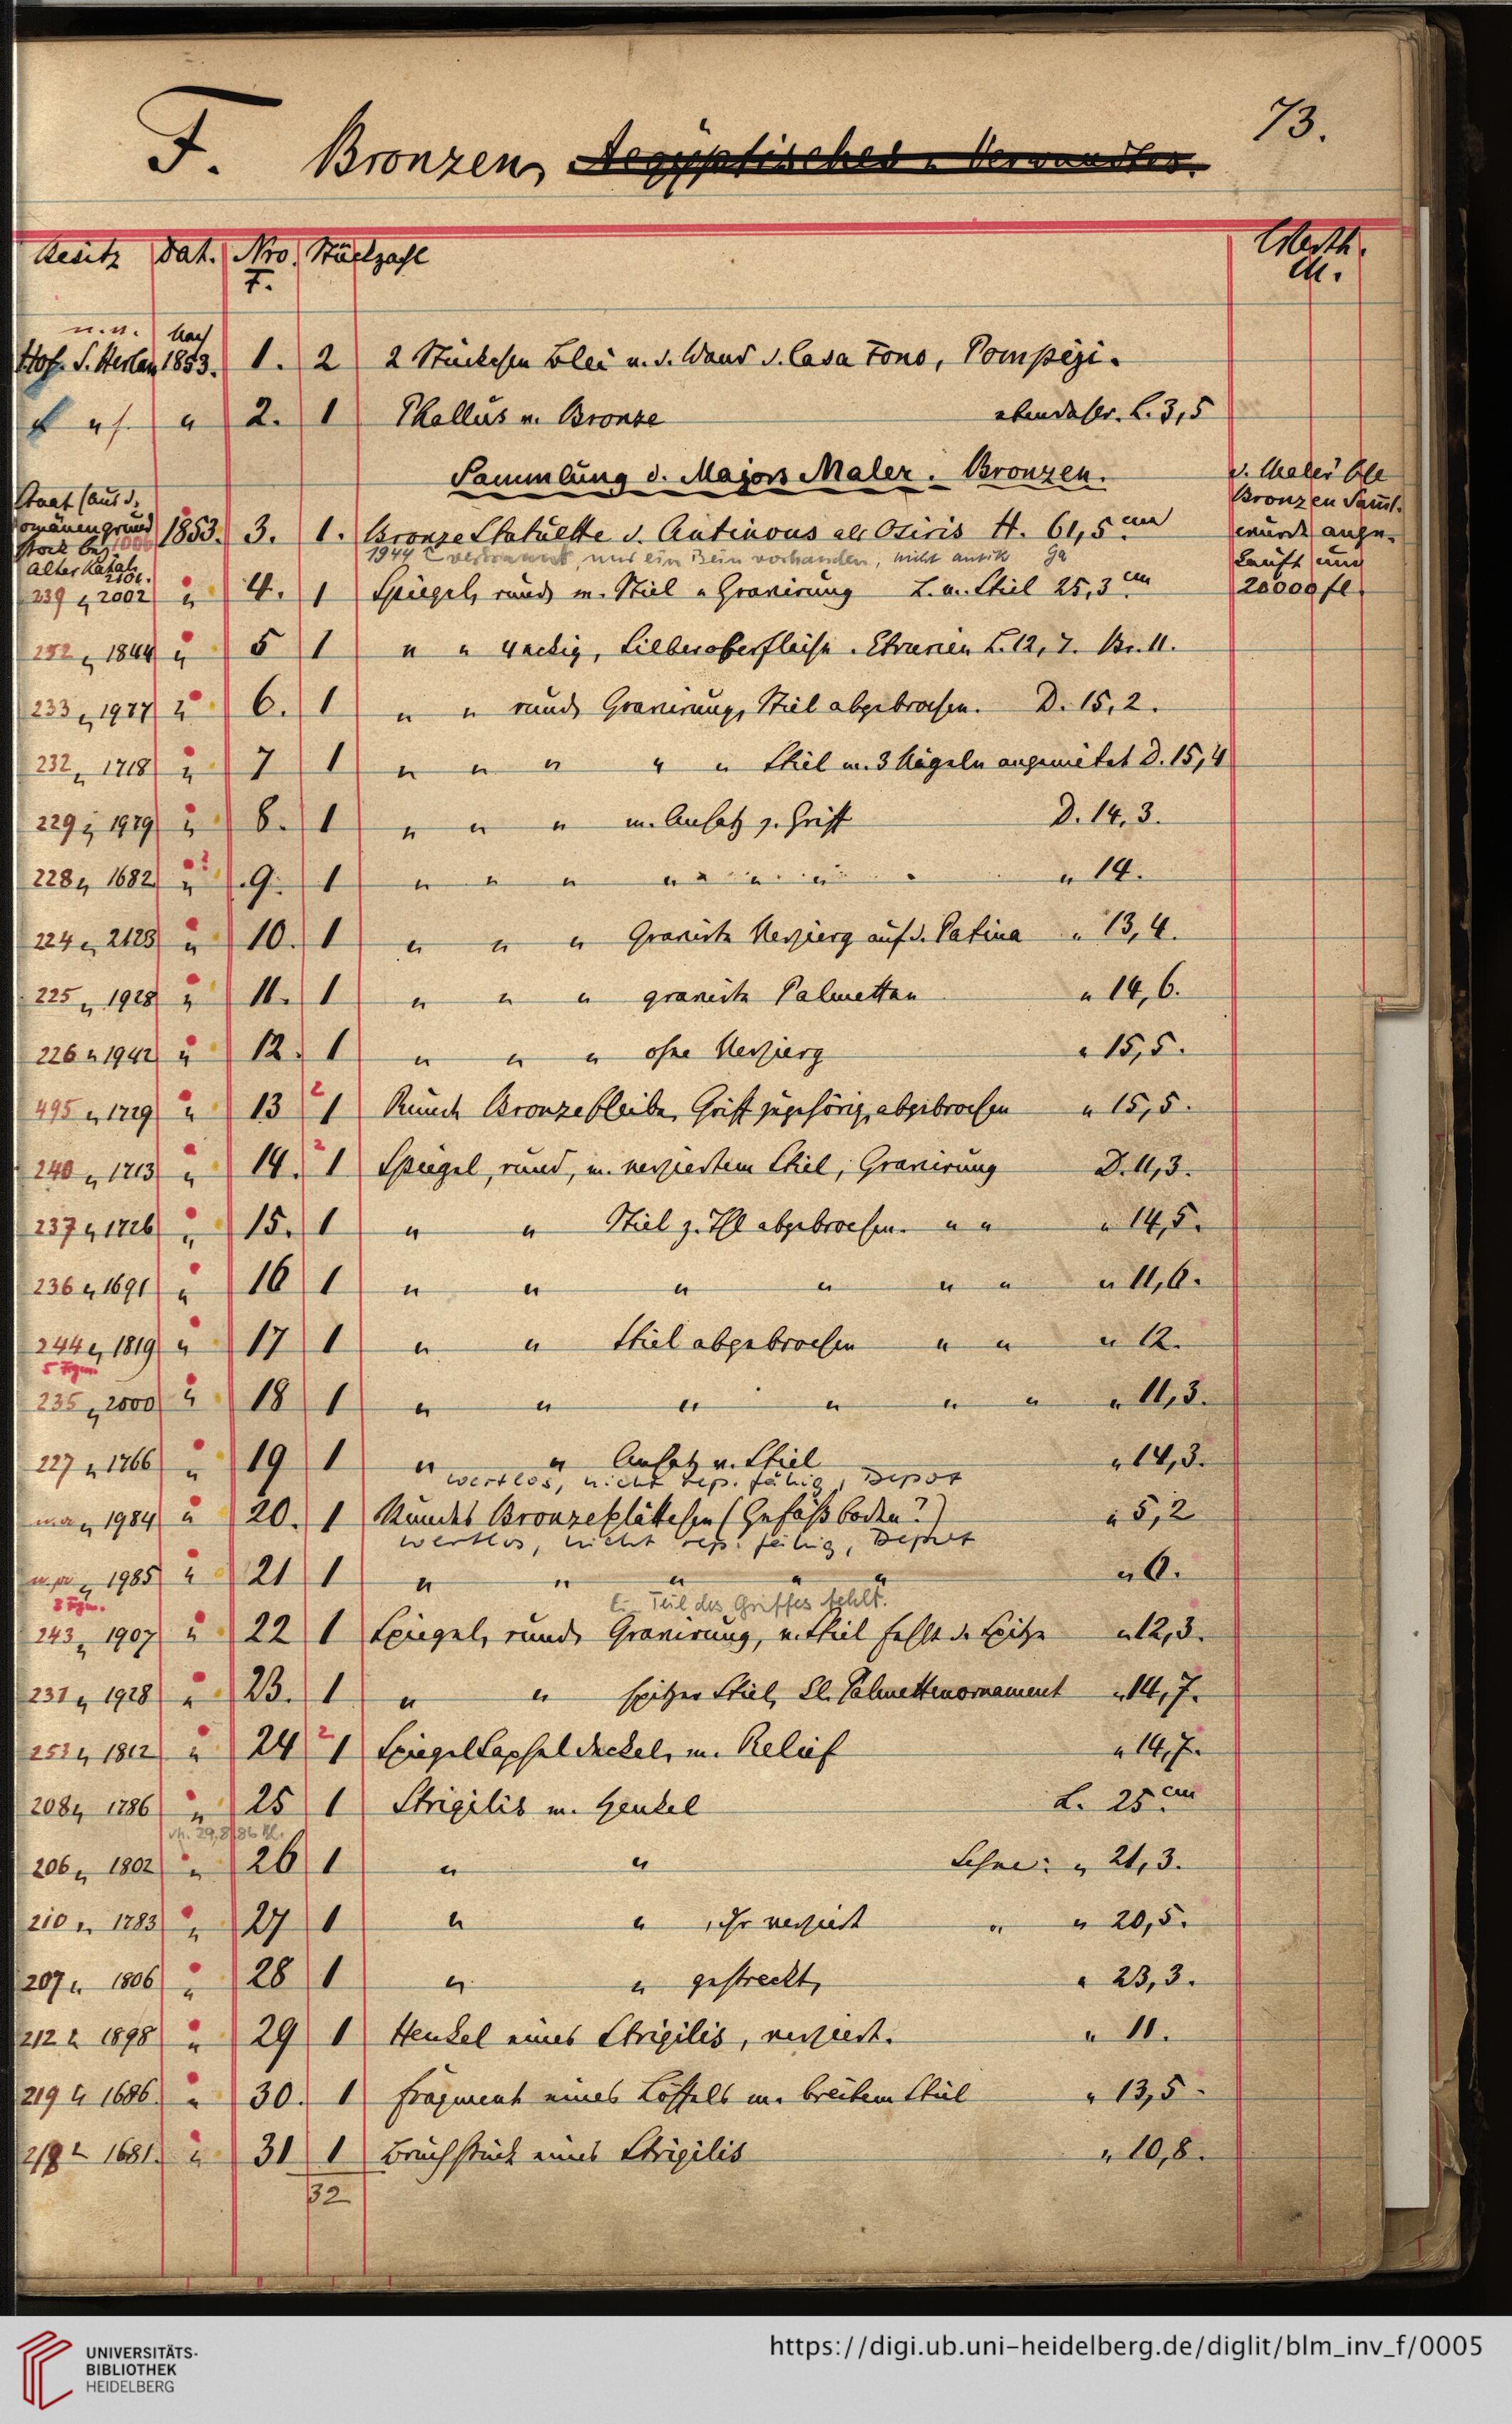 73.
F. Bronzen, Aegyptisches u. Verwandtes.
Besitz Dat. Nro. F. Stückzahl Werth. M.
n. n. nach
1853. 1. 2 2 Stückchen Blei v. d. Wand d. Casa Fono, Pompeji.
" " 2. 1 Phallus v. Bronze ebendaher. L. 3,5
Sammlung d. Majors Maler. Bronzen.
Staat (aus d. Domänengrundstock bez. 1853. 3. 1. Bronze Statuette d. Antinous als Osiris H. 61,5 cm
1944 verbrannt, nur ein Bein vorhanden, nicht antik Ga
v. Maler'sche Bronzen Saml. wurde angekauft um 20000 fl.
alter Katal. 2101.
239 " 2002 " 4. 1 Spiegel, rund, m. Stiel u Gravirung L. m. Stiel 25,3 cm
252 " 1844 " 5 1 " " 4eckig, Silberoberfläche. Etrurien L. 12,7. Br. 11.
233 " 1977 " 6. 1 " " rund, Gravirung, Stiel abgebrochen. D. 15,2.
232 " 1718 " 7 1 " " " " " Stiel m. 3 Nägeln angenietet D. 15,4
229 " 1979 " 8. 1 " " " m. Ansatz z. Griff D. 14,3.
228 " 1682 " 9. 1 " " " " " " " " 14.
224 " 2123 " 10. 1 " " " Gravirte Verzierg auf d. Patina " 13,4.
225 " 1928 " 11. 1 " " " gravirte Palmetten " 14,6.
226 " 1942 " 12. 1 " " " ohne Verzierg " 15,5.
495 " 1729 " 13 2 1 Runde Bronzescheibe, Griff zugehörig, abgebrochen " 15,5.
240 " 1713 " 14. 2 1 Spiegel, rund, m. verziertem Stiel, Gravirung D. 11,3.
237 " 1726 " 15. 1 " " Stiel z. Thl abgebrochen. " " " 14,5.
236 " 1691 " 16 1 " " " " " " " 11,6.
244 " 1819 " 17 1 " " Stiel abgebrochen " " " 12.
5 Figuren
235 " 2000 " 18 1 " " " " " " " 11,3.
227 " 1766 " 19 1 " " Ansatz v. Stiel " 14,3.
wertlos, nicht rep. fähig, Depot
" 1984 " 20. 1 Rundes Bronzeplättchen (Gefäßboden?) " 5,2
wertlos, nicht rep. fähig, Depot
" 1985 " 21 1 " " " " " " 6.
3 Figu.
Teil des Griffes fehlt.
243 " 1907 " 22 1 Spiegel, rund, Gravirung, v. Stiel fehlt d. Spitze " 12,3.
231 " 1928 " 23. 1 " " spitzer Stiel, kl. Palmettenornament " 14,7.
253 " 1812 " 24 2 1 Spiegelkapseldeckel, m. Relief " 14,7.
208 " 1786 " 25 1 Strigilis m. Henkel L. 25 cm
29.8.86
206 " 1802 " 26 1 " " " 21,3.
210 " 1783 " 27 1 " " verziert " " 20,5.
207 " 1806 " 28 1 " " gestreckt, " 23,3.
212 " 1898 " 29 1 Henkel eines Strigilis, verziert. " 11.
219 " 1686. " 30. 1 Fragment eines Löffels m. breitem Stiel " 13,5.
218 " 1681. " 31 1 Bruchstück eines Strigilis " 10,8.
32
UNIVERSITÄTS-
BIBLIOTHEK
HEIDELBERG
https://digi.ub.uni-heidelberg.de/diglit/blm_inv_f/0005